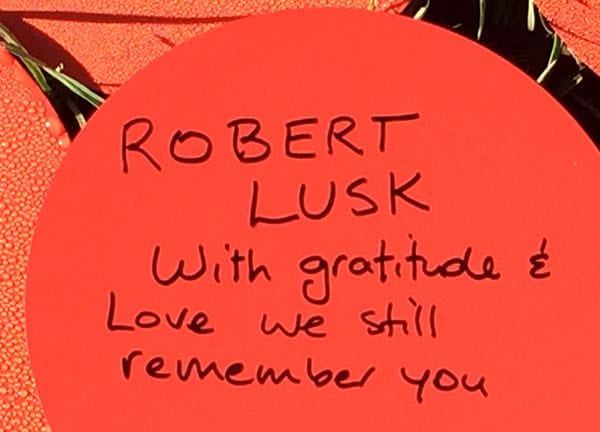 ROBERT
LUSK
With gratitude &
Love we still
remember you